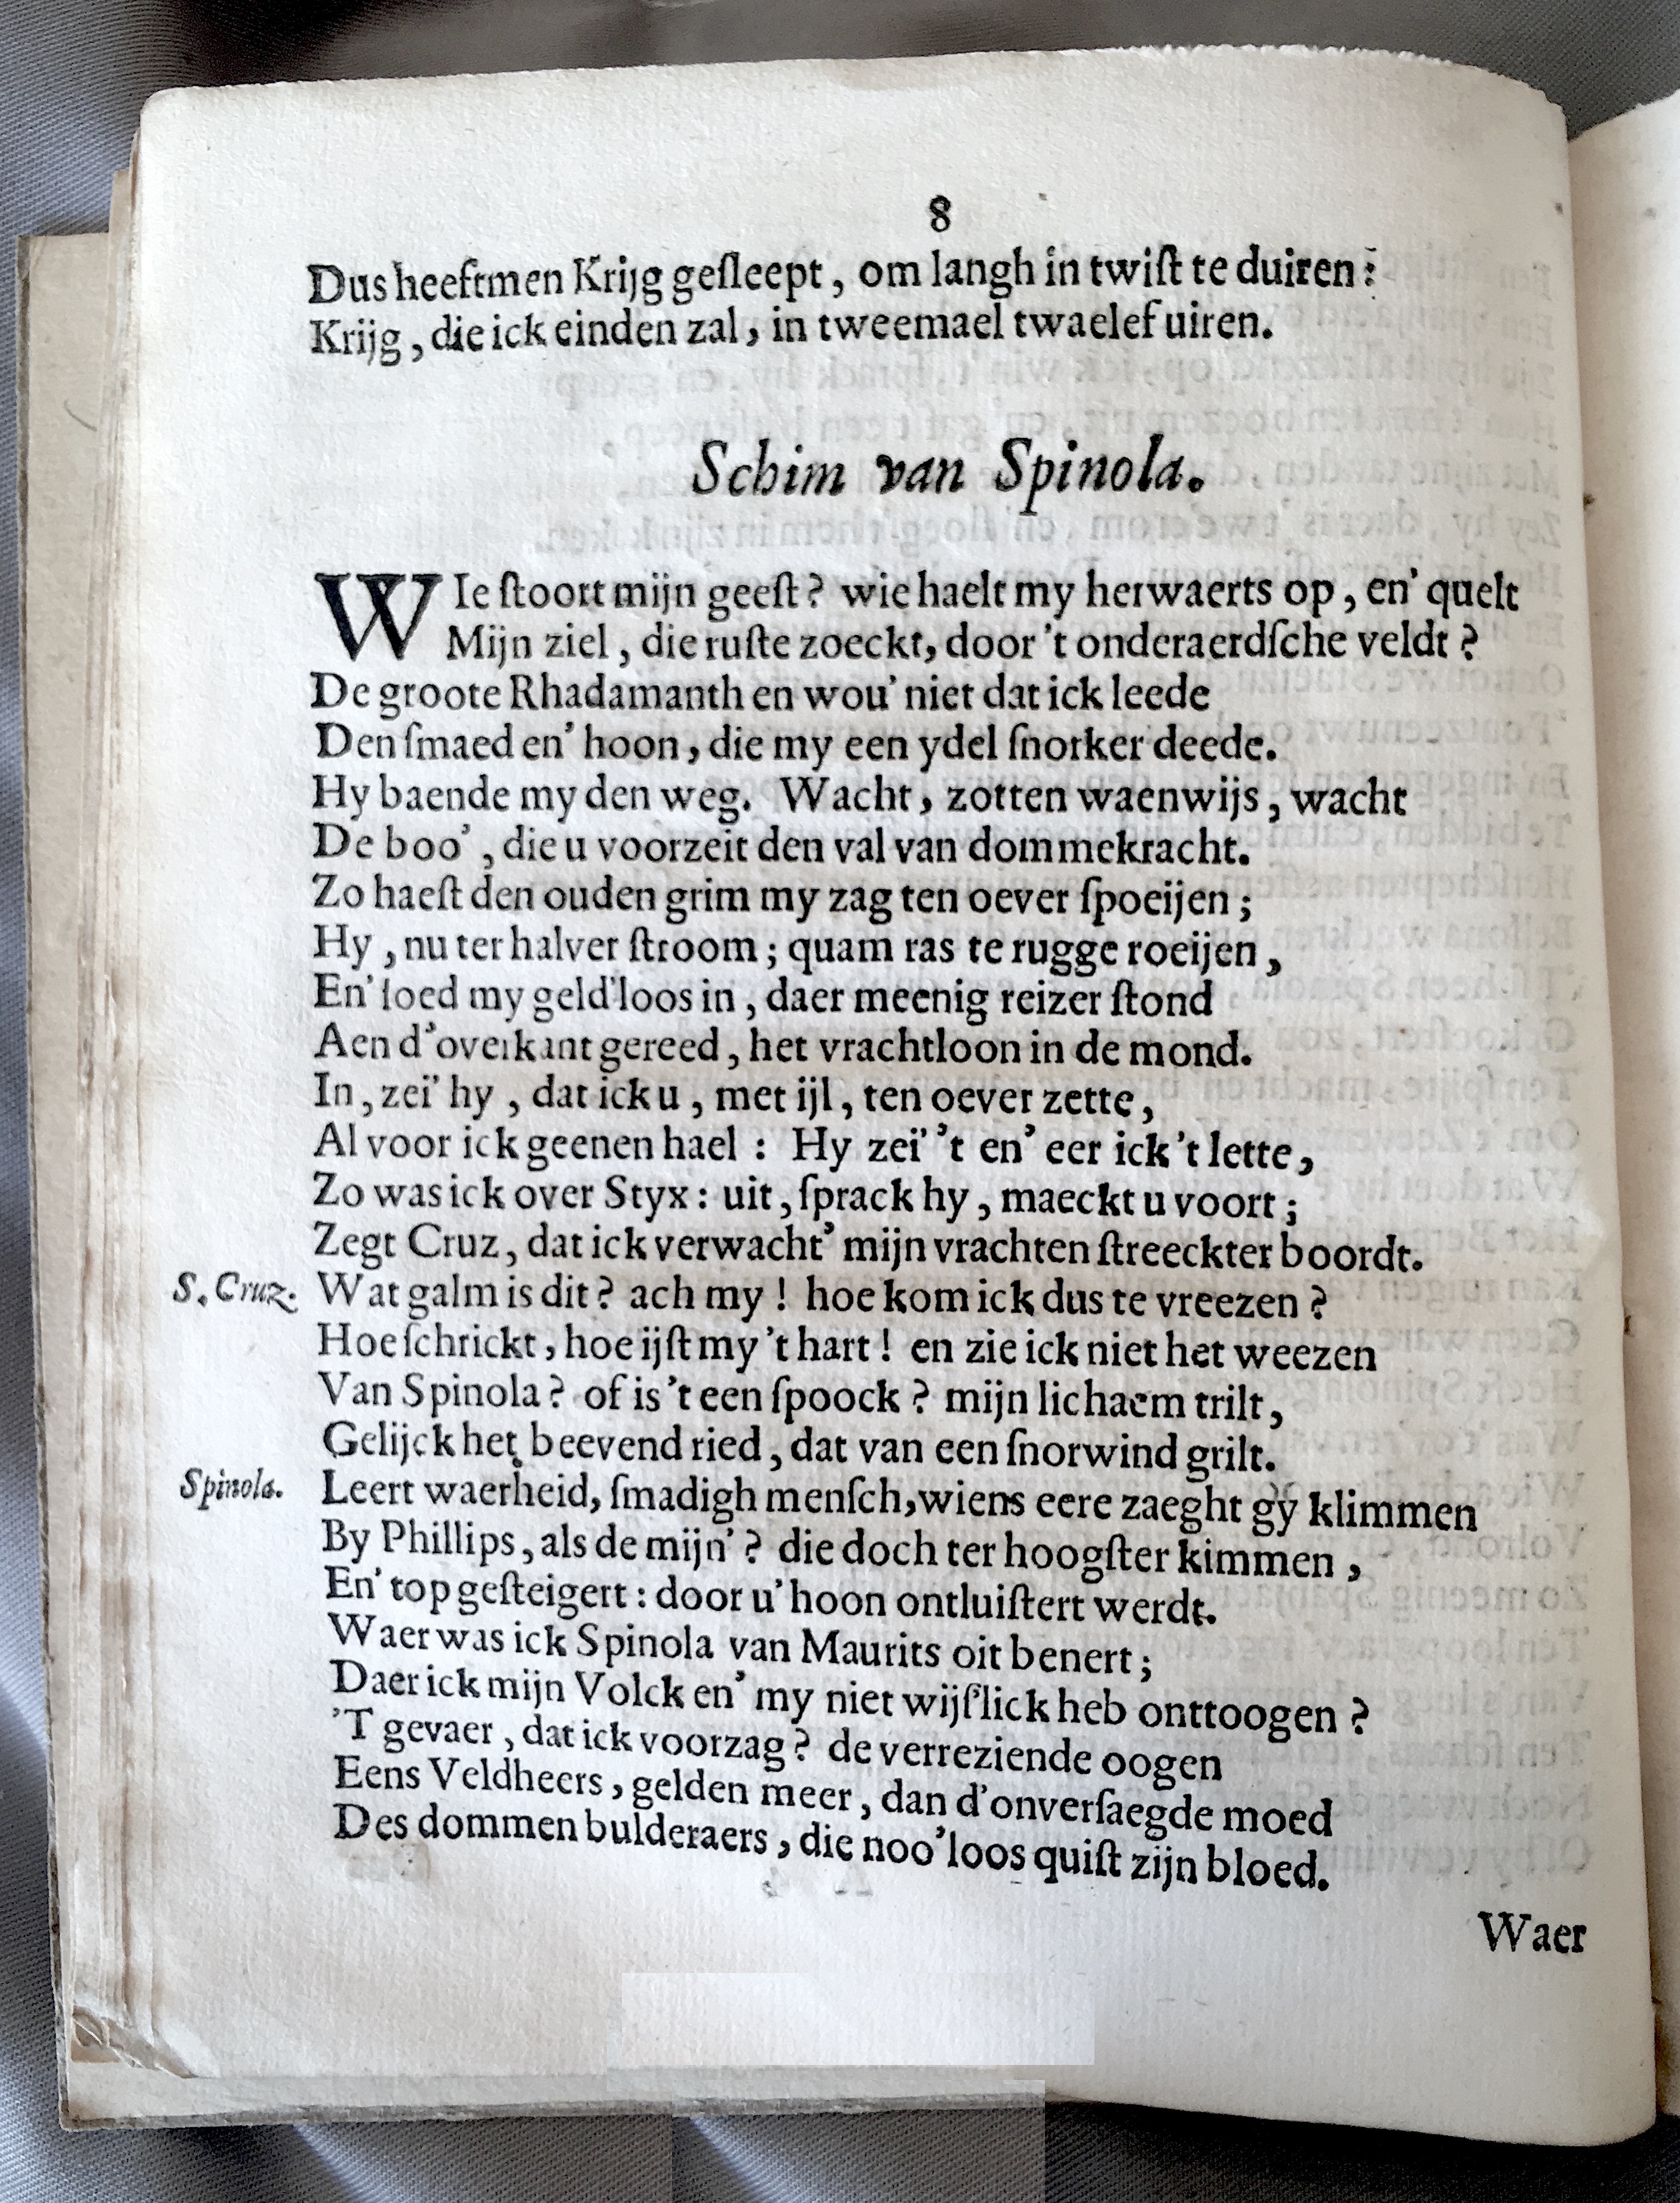 8
Dus heeftmen Krijg gesleept, om langh in twiſt te duiren:
Krijg, die ick einden zal, in tweemael twaelef uiren.
Schim van Spinola.
WIe ſtoort mijn geeſt? wie haelt my herwaerts op, en' quelt
Mijn ziel, die ruſte zoeckt, door 't onderaerdſche veldt?
De groote Rhadamanth en wou' niet dat ick leede
Den ſmaed en' hoon, die my een ydel ſnorker deede.
Hy baende my den weg. Wacht, zotten waenwijs, wacht
De boo', die u voorzeit den val van dommekracht.
Zo haeſt den ouden grim my zag ten oever ſpoeijen;
Hy, nu ter halver ſtroom; quam ras te rugge roeijen,
En' loed my geld'loos in, daer meenig reizer ſtond
Aen d'overkant gereed, het vrachtloon in de mond.
In, zeï' hy, dat ick u, met ijl, ten oever zette,
Al voor ick geenen hael: Hy zeï' 't en' eer ick 't lette,
Zo was ick over Styx: uit, ſprack hy, maeckt u voort;
Zegt Cruz, dat ick verwacht' mijn vrachten ſtreeckter boordt.
S. Cruz. Wat galm is dit? ach my! hoe kom ick dus te vreezen?
Hoe ſchrickt, hoe ijſt my 't hart! en zie ick niet het weezen
Van Spinola? of is 't een ſpoock? mijn lichaem trilt,
Gelijck het beevend ried, dat van een ſnorwind grilt.
Spinola. Leert waerheid, ſmadigh menſch, wiens eere zaeght gy klimmen
By Phillips, als de mijn'? die doch ter hoogſter kimmen,
En' top geſteigert: door u' hoon ontluiſtert werdt.
Waer was ick Spinola van Maurits oit benert;
Daer ick mijn Volck en' my niet wijſ'lick heb onttoogen?
'T gevaer, dat ick voorzag? de verreziende oogen
Eens Veldheers, gelden meer, dan d'onverſaegde moed
Des dommen bulderaers, die noo'loos quiſt zijn bloed.
Waer